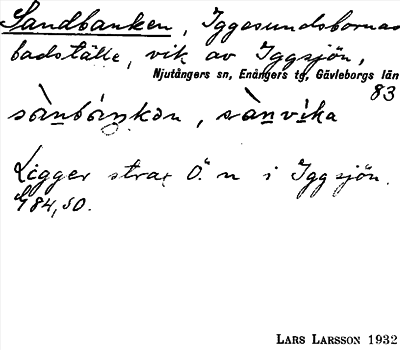 Sandbanken, Iggesundsbornas
badställe, vik av Iggsjön,
Njutångers sn, Enångers tg, Gävleborgs län
83
sàn̲bán̲kən, sàn̲vi̲ka
Ligger strax Ö. n i Iggsjön.
G84,50.
LARS LARSSON 1932